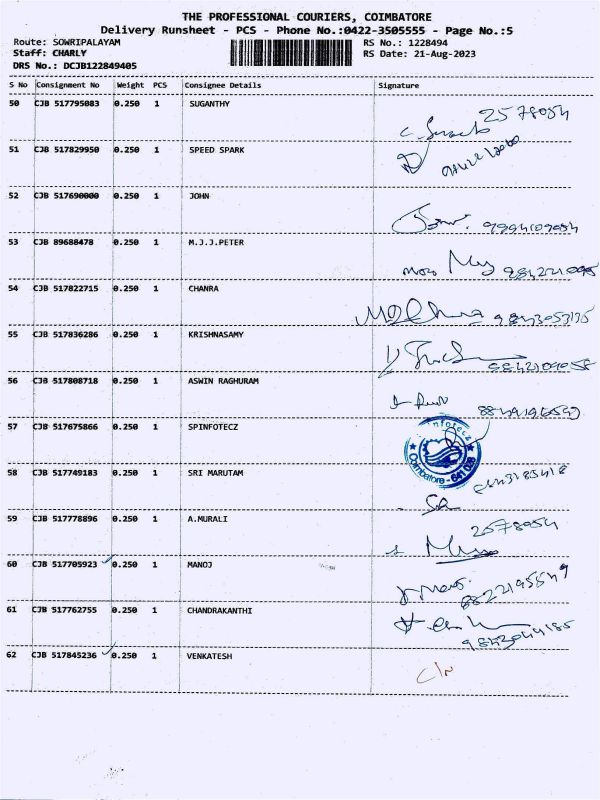 THE PROFESSIONAL COURIERS, COIMBATORE
Delivery Runsheet - PCS - Phone No.:0422-3505555 - Page No.:5
Route: SOWRIPALAYAM RS No.: 1228494
Staff: CHARLY RS Date: 21-Aug-2023
DRS No.: DCJB122849405
S No Consignment No Weight PCS Consignee Details Signature
50 CJB 517795083 0.250 1 SUGANTHY
2578054
51 CJB 517829950 0.250 1 SPEED SPARK
52 CJB 517690000 0.250 1 JOHN
53 CJB 89688478 0.250 1 M.J.J.PETER
54 CJB 517822715 0.250 1 CHANRA
55 CJB 517836286 0.250 1 KRISHNASAMY
56 CJB 517808718 0.250 1 ASWIN RAGHURAM
57 CJB 517675866 0.250 1 SPINFOTECZ
infotecz
Coimbatore - 641 028
58 CJB 517749183 0.250 1 SRI MARUTAM
59 CJB 517778896 0.250 1 A.MURALI
2578054
60 CJB 517705923 0.250 1 MANOJ
61 CJB 517762755 0.250 1 CHANDRAKANTHI
9843044185
62 CJB 517845236 0.250 1 VENKATESH